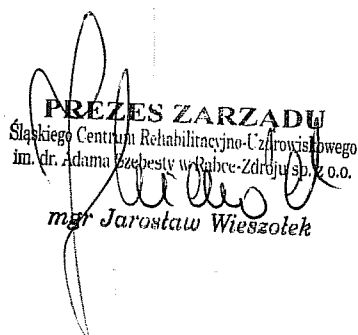 PREZES ZARZĄDU
Śląskiego Centrum Rehabilitacyjno-Uzdrowiskowego
im. dr. Adama Szebesty w Rabce-Zdroju sp. z o.o.
mgr Jarosław Wieszołek